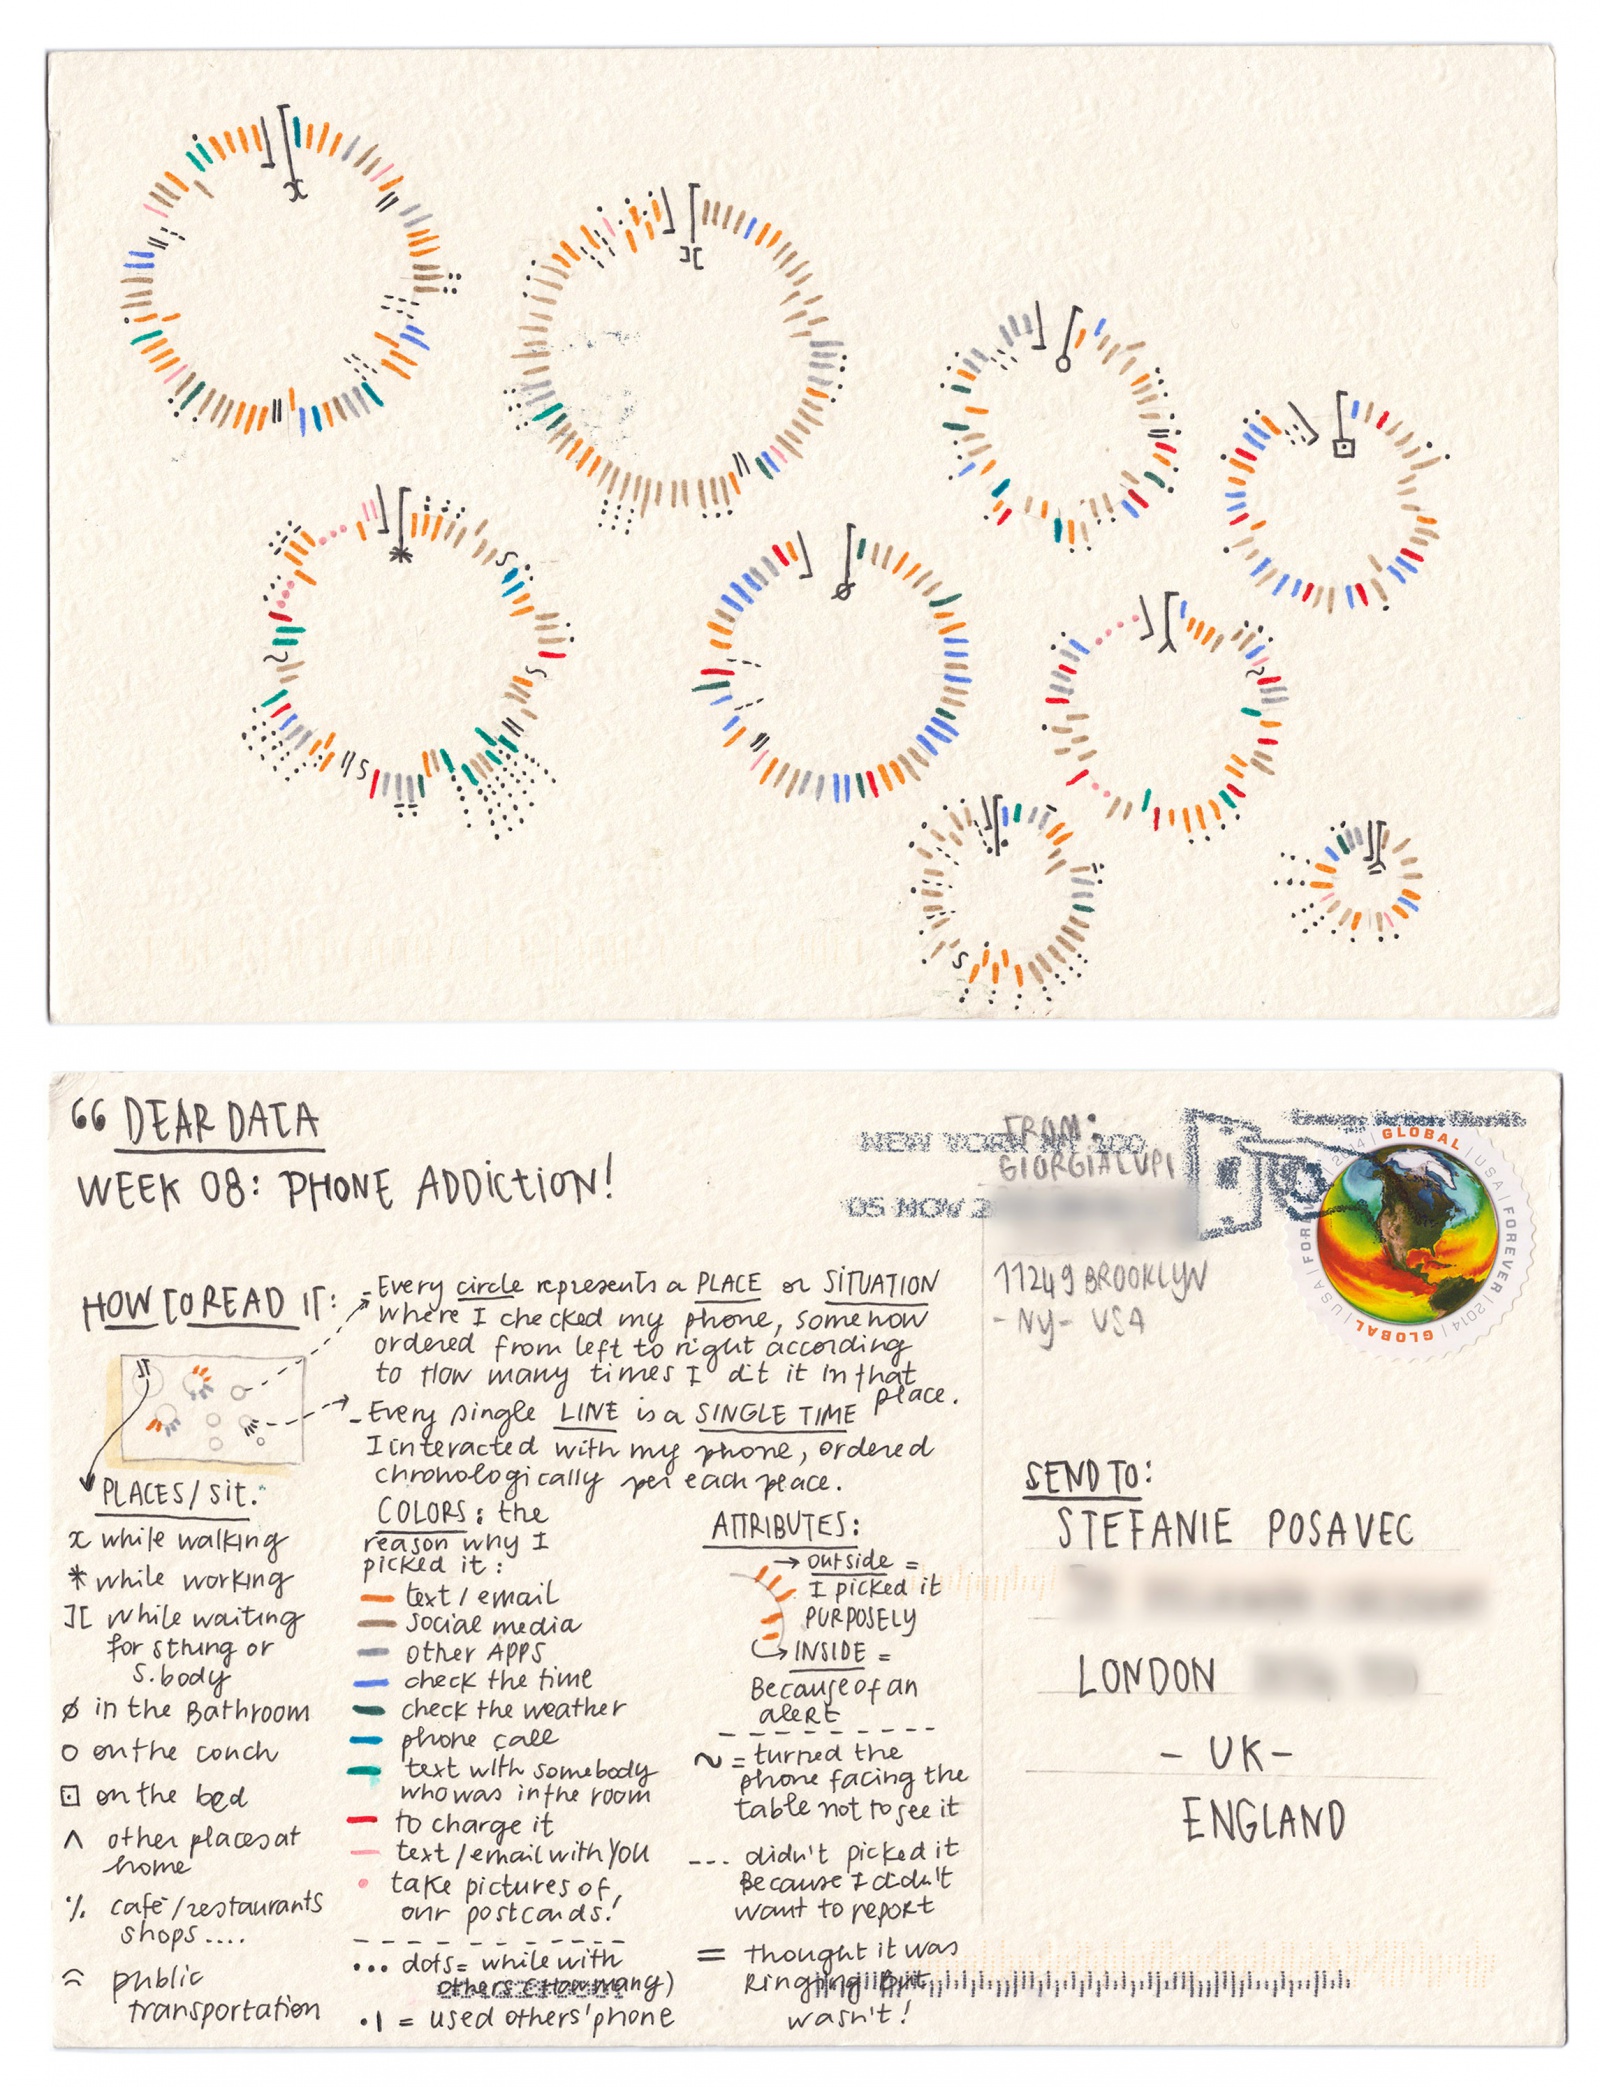 “ DEAR DATA
WEEK 08: PHONE ADDICTION!
HOW TO READ IT:
- Every circle represents a PLACE or SITUATION
where I checked my phone, somehow
ordered from left to right according
to how many times I dit it in that
place.
- Every single LINE is a SINGLE TIME
I interacted with my phone, ordered
chronologically per each place.
PLACES/sit.
x while walking
* while working
][ while waiting
for sthing or
s.body
ø in the Bathroom
o on the couch
⊡ on the bed
^ other places at
home
% cafè/restaurants
shops....
public
transportation
COLORS: the
reason why I
picked it:
text / email
social media
other APPS
check the time
check the weather
phone call
text with somebody
who was in the room
to charge it
text / email with YOU
take pictures of
our postcards!
... dots = while with
others (How many)
.| = used others' phone
ATTRIBUTES:
→ outside =
I picked it
PURPOSELY
→ INSIDE =
Because of an
alert
~ = turned the
phone facing the
table not to see it
--- didn't picked it
Because I didn't
want to report
= thought it was
Ringing But
wasn't!
FROM:
GIORGIA LUPI
11249 BROOKLYN
- NY - USA
NEW YORK NY 100
05 NOV 2
GLOBAL | USA | FOREVER | 2014 | GLOBAL | USA | FOREVER 2014
SEND TO:
STEFANIE POSAVEC
LONDON
- UK -
ENGLAND